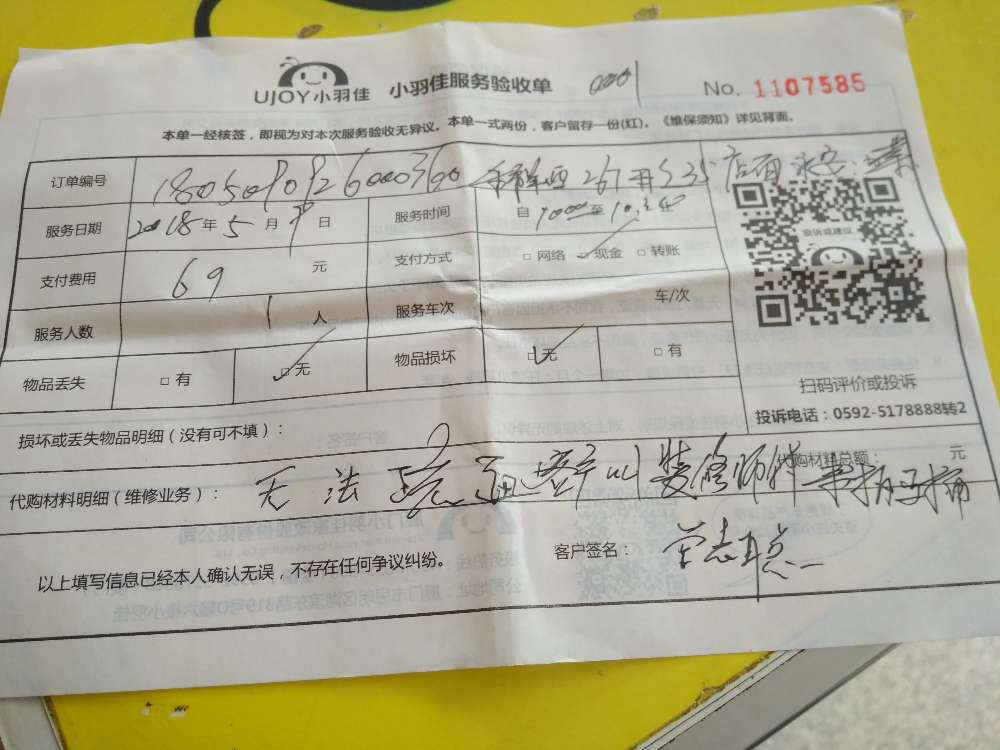 UJOY小羽佳 小羽佳服务验收单 0001 No. 1107585
本单一经核签，即视为对本次服务验收无异议。本单一式两份，客户留存一份(红)。《维保须知》详见背面。
订单编号 店面
服务日期 2018年5月9日 服务时间 自10:00至
支付费用 69 元 支付方式 □ 网络 ☑ 现金 □ 转账
服务人数 1 人 服务车次 车/次
物品丢失 □ 有 ☑ 无 物品损坏 ☑ 无 □ 有
投诉或建议
扫码评价或投诉
投诉电话：0592-5178888转2
损坏或丢失物品明细（没有可不填）：
代购材料总额： 元
代购材料明细（维修业务）： 无法疏通 客户叫装修师傅
以上填写信息已经本人确认无误，不存在任何争议纠纷。 客户签名：